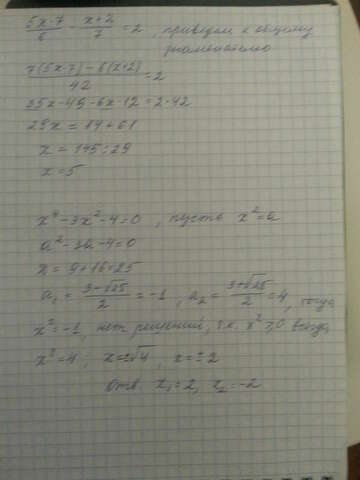 (5x-7)/6 - (x+2)/7 = 2, приводим к общему
знаменателю
(7(5x-7)-6(x+2))/42 = 2
35x-49-6x-12=2·42
29x=84+61
x=145:29
x=5
x⁴-3x²-4=0, пусть x²=a
a²-3a-4=0
=9+16=25
a₁=(3-√25)/2=-1, a₂=(3+√25)/2=4, тогда
x²=-1, нет решений, т.к. x²≥0 всегда
x²=4, x=±√4, x=±2
Отв. x₁=2, x₂=-2